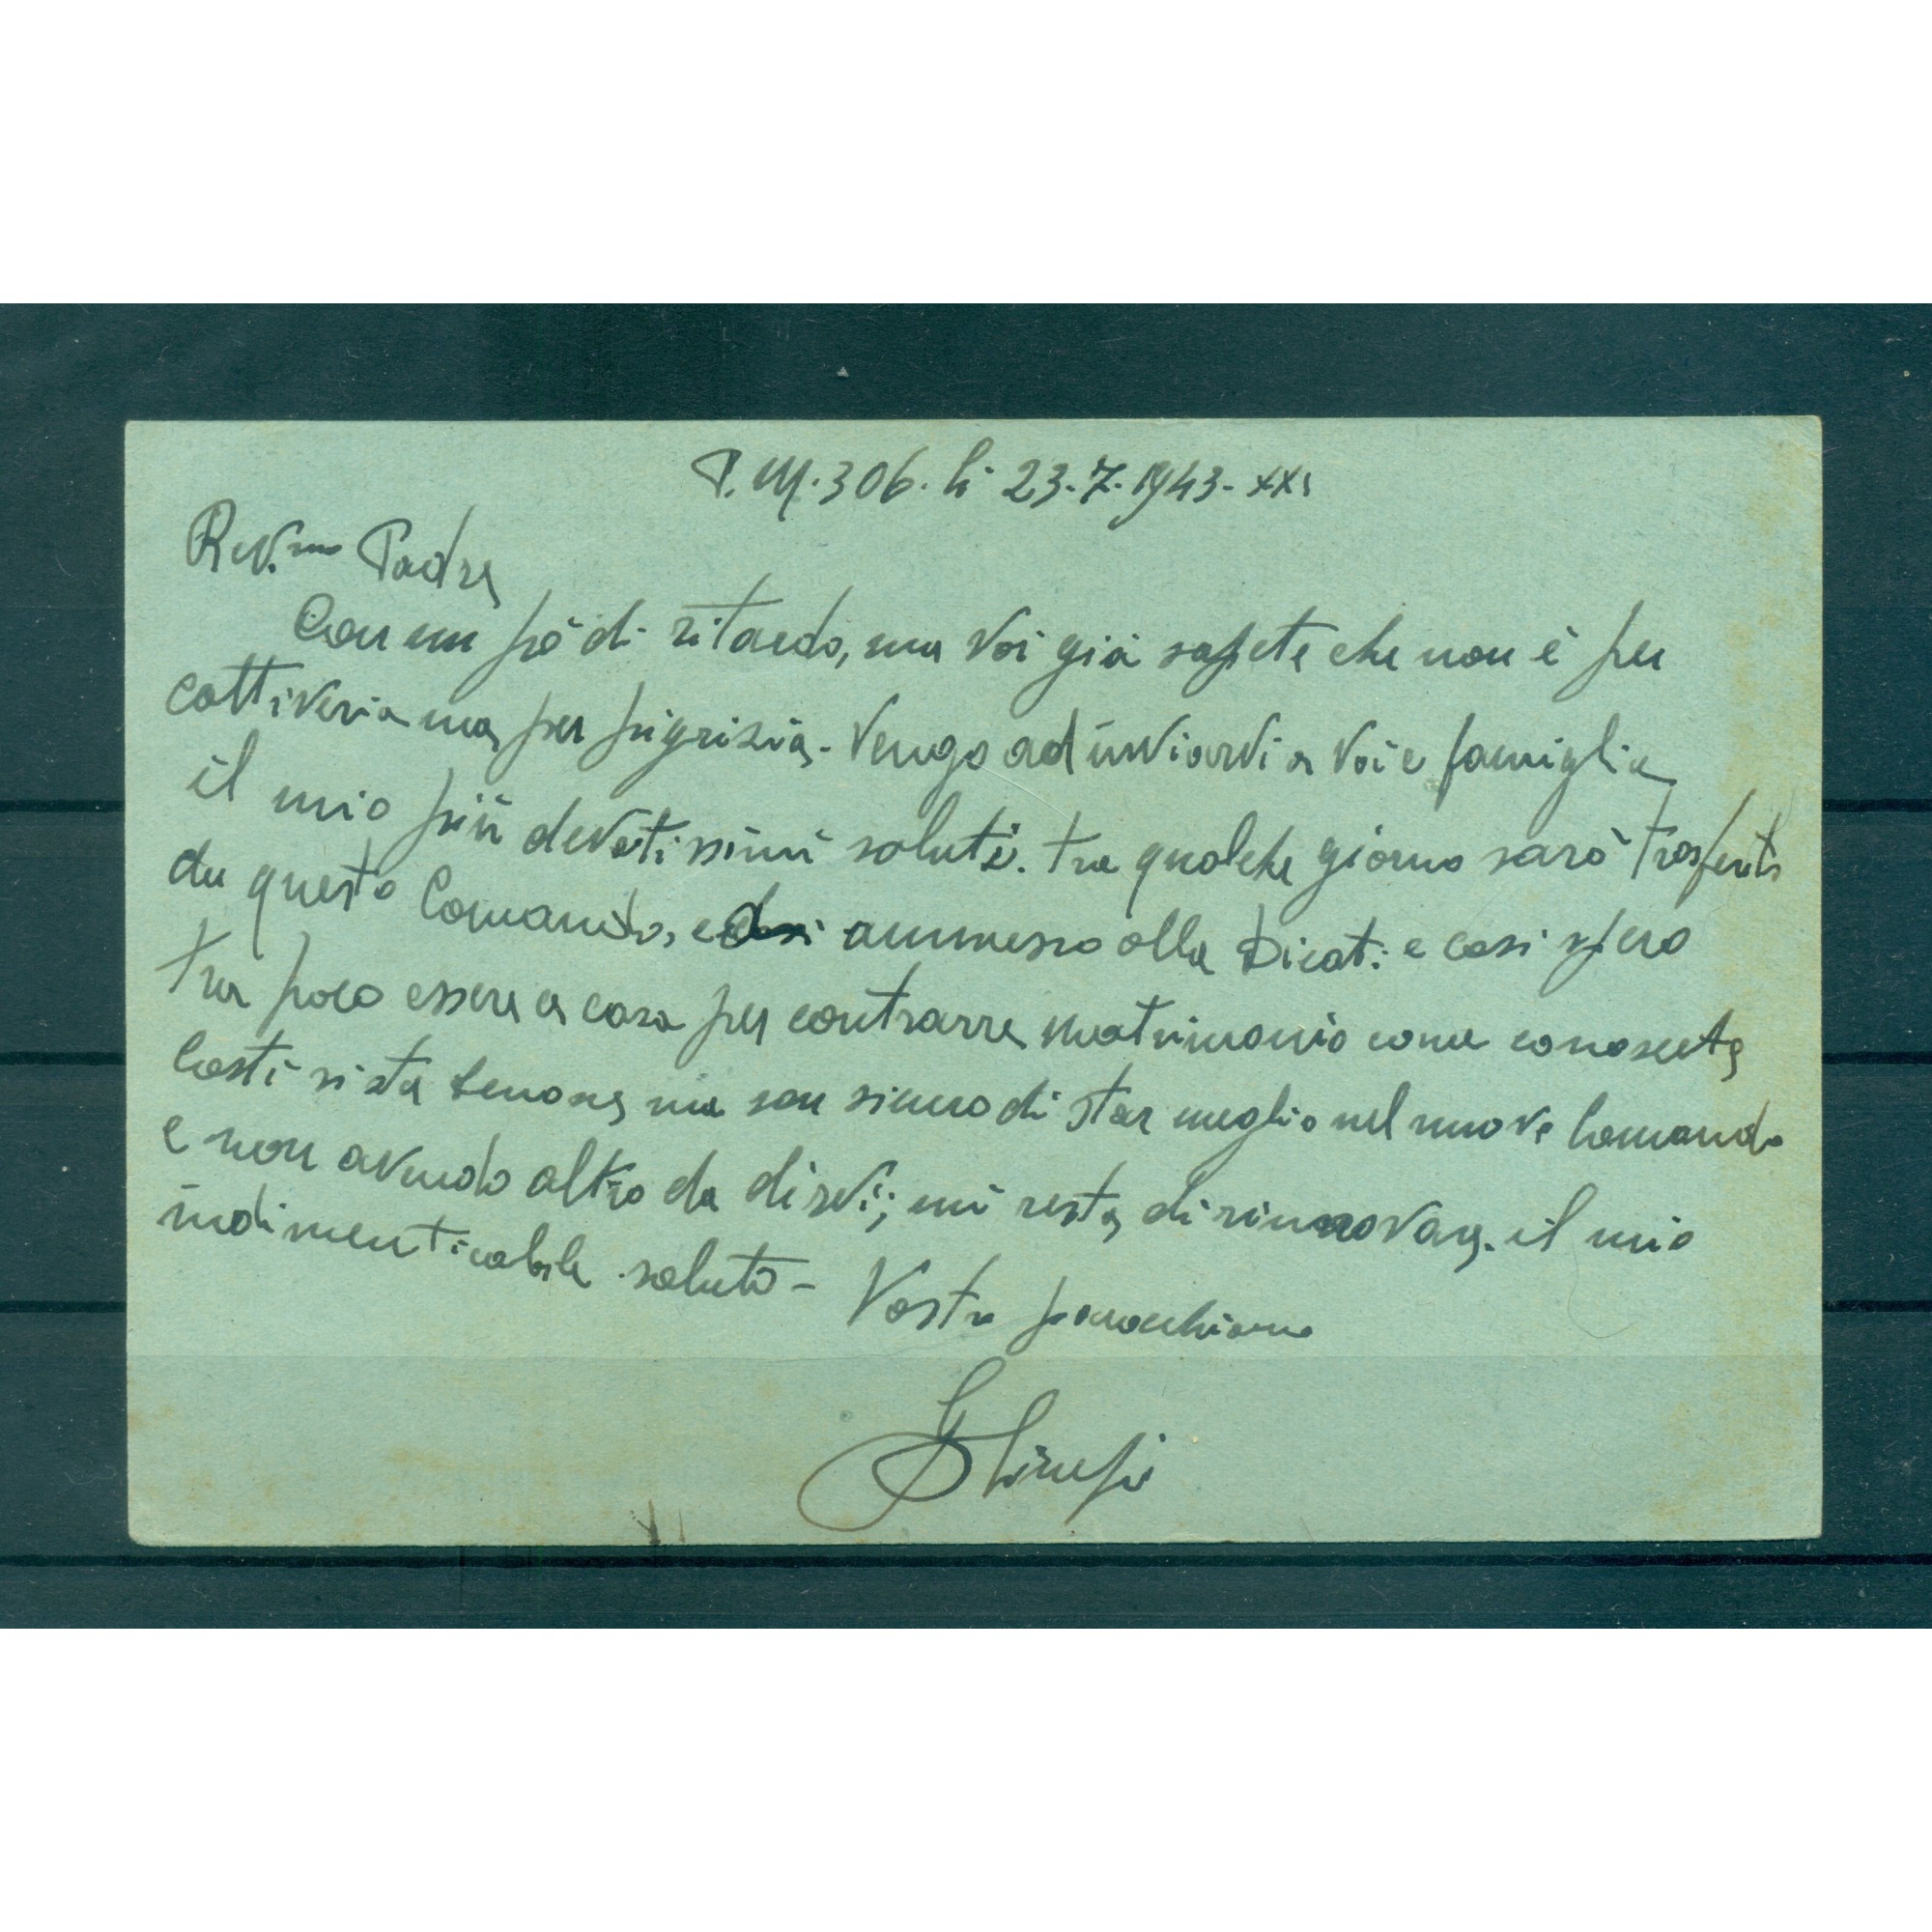 P.M. 306. li 23.7.1943-XXI
Rev.mo Padre
Con un pò di ritardo, ma Voi già sapete che non è per
cattiveria ma per pigrizia. Vengo ad inviarvi a Voi e famiglia
il mio più devotissimi saluti. Tra qualche giorno sarò trasferito
da questo Comando, ammesso alla Dicat: e così spero
tra poco essere a casa per contrarre matrimonio come conoscete
Costì si sta benone, ma son sicuro di star meglio nel nuove Comando
e non avendo altro da dirvi; mi resta di rinnovare. il mio
indimenticabile saluto - Vostro parrocchiano